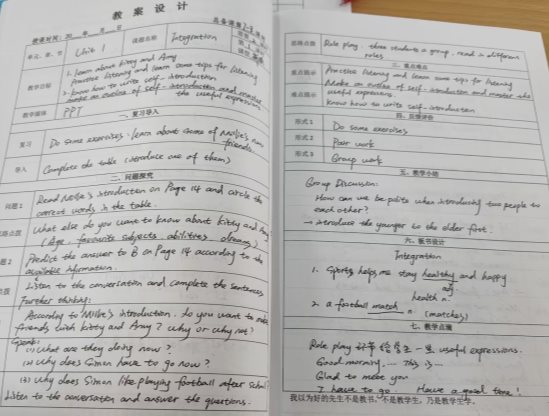 教 案 设 计
授课时间：20 年 月 日
单元、章、节
Unit 1
课题名称
Integration
教学目标
1. learn about Kitty and Amy
Practise listening and learn some tips for listening
2. Know how to write self-introduction
Make an outline of self-introduction and master
the useful expressions
教学媒体
PPT
一、复习导入
复习
Do some exercises: learn about some of Millie's new
friends.
导入
Complete the table (introduce one of them)
二、问题探究
问题1
Read Millie's introduction on Page 14 and circle the
correct words in the table.
What else do you want to know about Kitty and Amy
(Age, favourite subjects, abilities, dreams)
Predict the answer to B on Page 14 according to the
available information.
Listen to the conversation and complete the sentences
Further thinking:
According to Millie's introduction, do you want to make
friends with Kitty and Amy? Why or why not?
(1) What are they doing now?
(2) Why does Simon have to go now?
(3) Why does Simon like playing football after school?
Listen to the conversation and answer the questions.
思路点拨
Role play: three students a group, read in different
roles
三、重点难点
重点提示
Practise listening and learn some tips for listening
Make an outline of self-introduction and master the
useful expressions
Know how to write self-introduction
四、反馈评价
形式1
Do some exercises
形式2
Pair work
形式3
Group work
五、教学小结
Group Discussion:
How can we be polite when introducing two people to
each other?
→ introduce the younger to the older first.
六、板书设计
Integration
1. Sports helps me stay healthy and happy
adj.
health n.
2. a football match n. (matches)
七、教学点滴
Role play 环节 给学生 一些 useful expressions.
Good morning, ... This is ...
Glad to meet you
I have to go. Have a good time!
我以为好的先生不是教书，不是教学生，乃是教学生学。